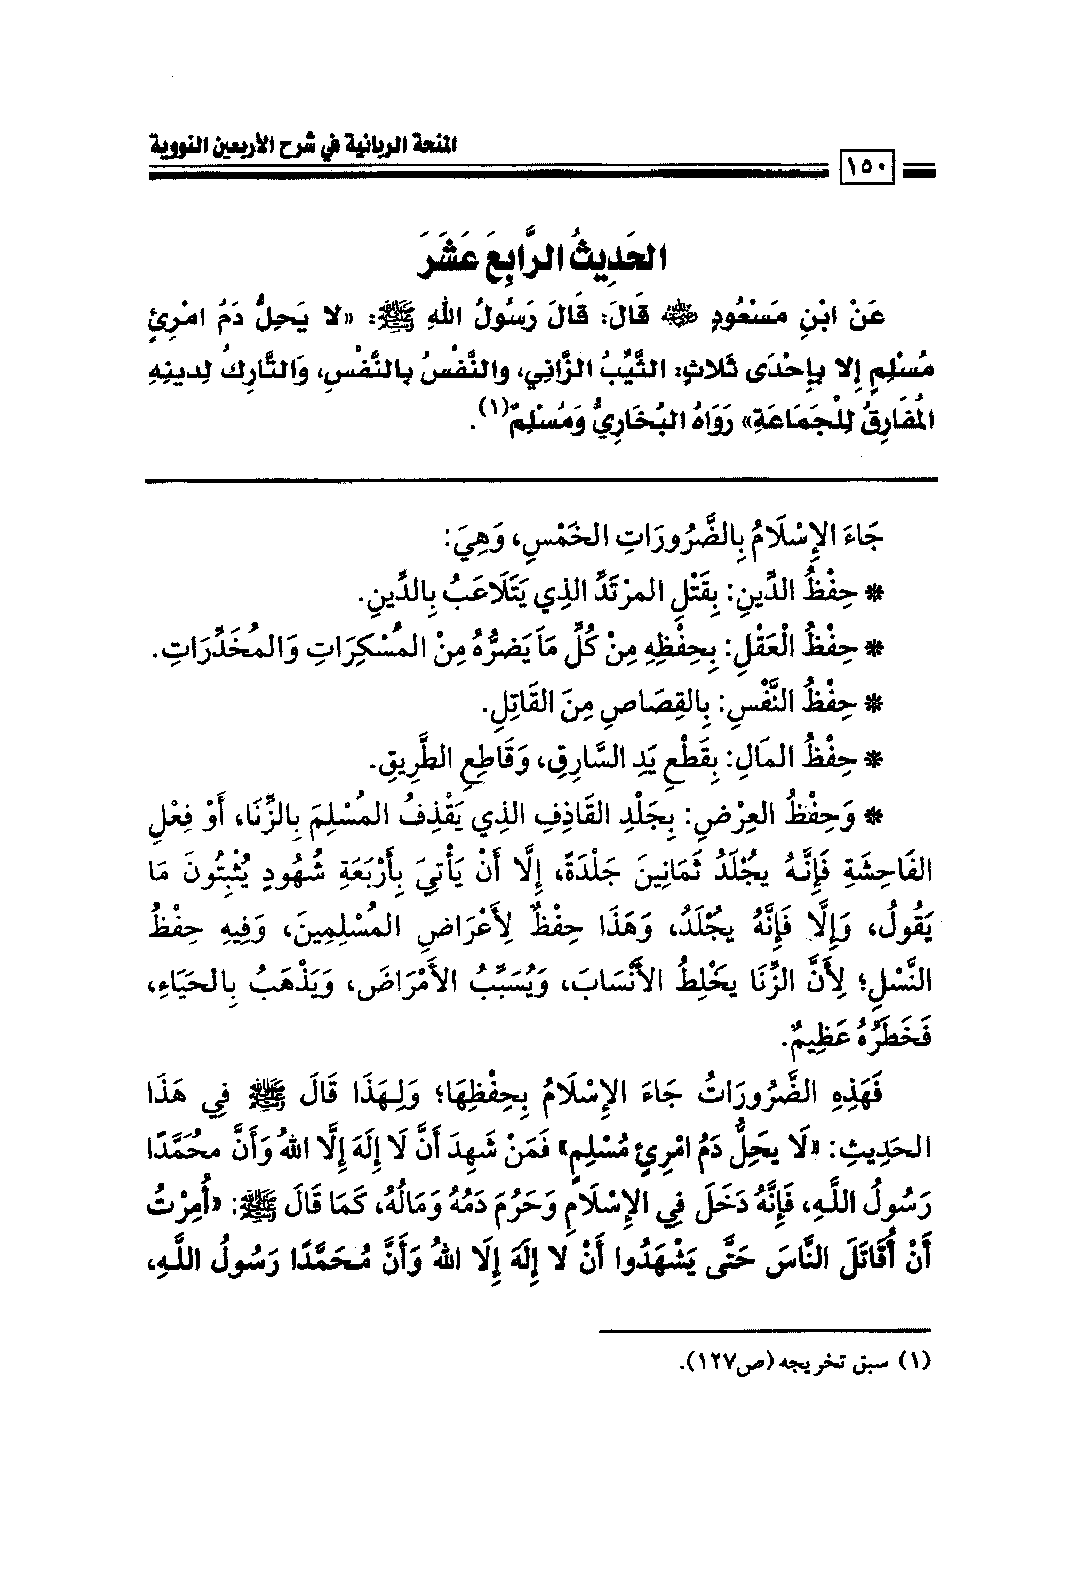 المنحة الربانية في شرح الأربعين النووية
١٥٠
الحَدِيثُ الرَّابِعَ عَشَرَ
عَنْ ابْنِ مَسْعُودٍ رضي الله عنه قَالَ: قَالَ رَسُولُ اللهِ ﷺ: «لا يَحِلُّ دَمُ امْرِئٍ
مُسْلِمٍ إلا بِإحْدَى ثَلاثٍ: الثَّيِّبُ الزَّانِي، والنَّفْسُ بالنَّفْسِ، وَالتَّارِكُ لِدينِهِ
المُفَارِقُ لِلْجَمَاعَةِ» رَوَاهُ البُخَارِيُّ وَمُسْلِمٌ(١).
جَاءَ الإِسْلَامُ بِالضَّرُورَاتِ الخَمْسِ، وَهِيَ:
* حِفْظُ الدِّينِ: بِقَتْلِ المرْتَدِّ الذِي يَتَلَاعَبُ بِالدِّينِ.
* حِفْظُ الْعَقْلِ: بِحِفْظِهِ مِنْ كُلِّ مَا يَضرُّهُ مِنْ المُسْكِرَاتِ وَالمُخَدِّرَاتِ.
* حِفْظُ النَّفْسِ: بِالقِصَاصِ مِنَ القَاتِلِ.
* حِفْظُ المَالِ: بِقَطْعِ يَدِ السَّارِقِ، وَقَاطِعِ الطَّرِيقِ.
* وَحِفْظُ العِرْضِ: بِجَلْدِ القَاذِفِ الذِي يَقْذِفُ المُسْلِمَ بِالزِّنَا، أَوْ فِعْلِ
الفَاحِشَةِ فَإِنَّهُ يُجْلَدُ ثَمَانِينَ جَلْدَةً، إِلَّا أَنْ يَأْتِيَ بِأَرْبَعَةِ شُهُودٍ يُثْبِتُونَ مَا
يَقُولُ، وَإِلَّا فَإِنَّهُ يُجْلَدُ، وَهَذَا حِفْظٌ لِأَعْرَاضِ المُسْلِمِينَ، وَفِيهِ حِفْظُ
النَّسْلِ؛ لِأَنَّ الزِّنَا يَخْلِطُ الأَنْسَابَ، وَيُسَبِّبُ الأَمْرَاضَ، وَيَذْهَبُ بِالحَيَاءِ،
فَخَطَرُهُ عَظِيمٌ.
فَهَذِهِ الضَّرُورَاتُ جَاءَ الإِسْلَامُ بِحِفْظِهَا؛ وَلِهَذَا قَالَ ﷺ فِي هَذَا
الحَدِيثِ: «لَا يَحِلُّ دَمُ امْرِئٍ مُسْلِمٍ» فَمَنْ شَهِدَ أَنَّ لَا إِلَهَ إِلَّا اللهُ وَأَنَّ مُحَمَّدًا
رَسُولُ اللَّهِ، فَإِنَّهُ دَخَلَ فِي الإِسْلَامِ وَحَرُمَ دَمُهُ وَمَالُهُ، كَمَا قَالَ ﷺ: «أُمِرْتُ
أَنْ أُقَاتَلَ النَّاسَ حَتَّى يَشْهَدُوا أَنْ لا إِلَهَ إِلَا اللهُ وَأَنَّ مُحَمَّدًا رَسُولُ اللَّهِ،
(١) سبق تخريجه (ص١٢٧).